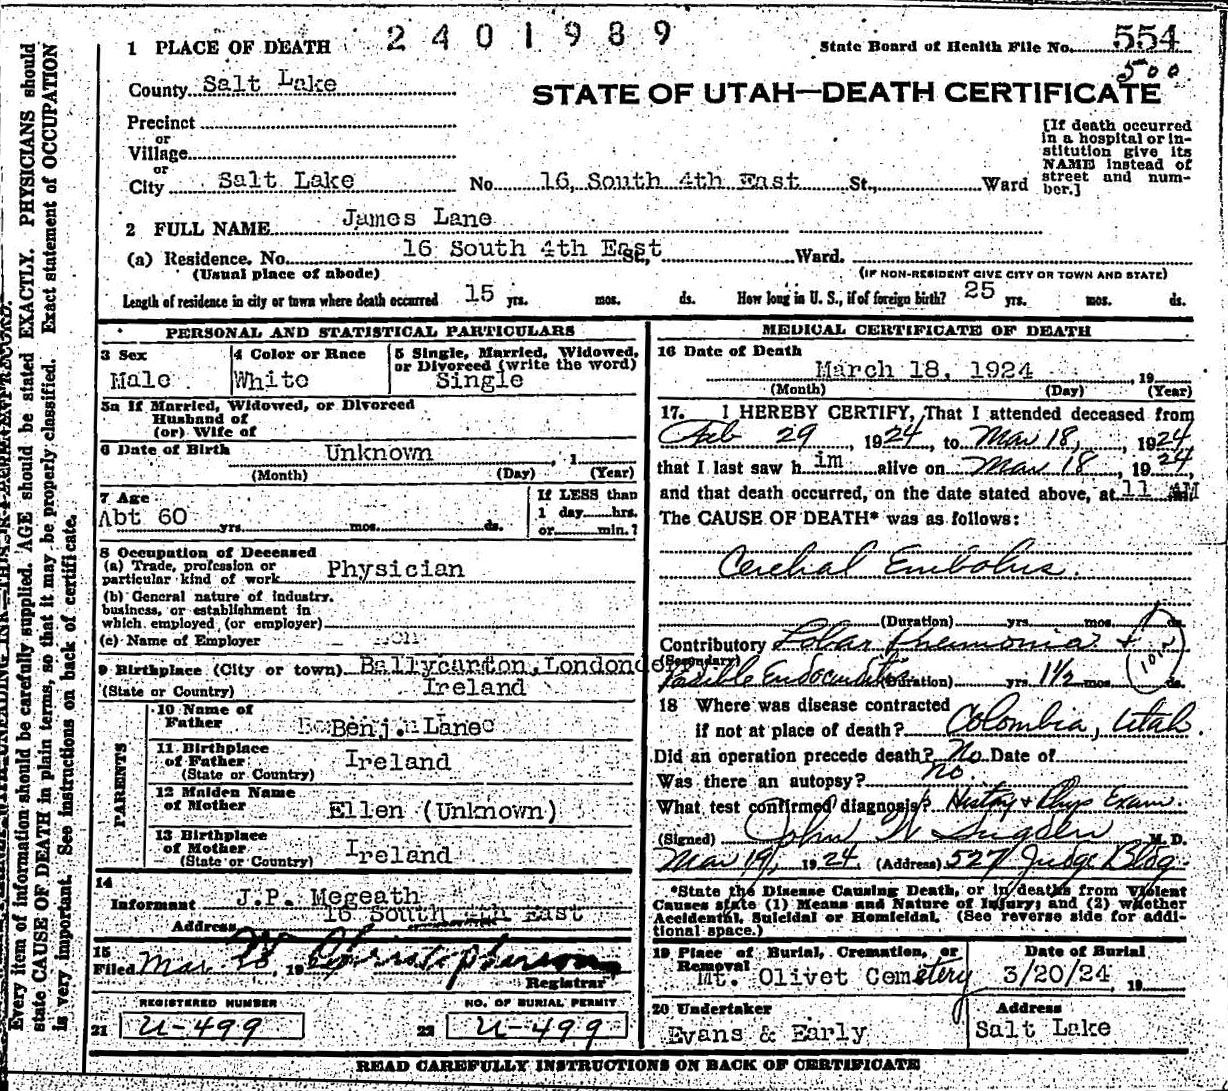 2401989
1 PLACE OF DEATH
State Board of Health File No. 554
500
County Salt Lake
STATE OF UTAH—DEATH CERTIFICATE
Precinct
or
Village
or
City Salt Lake No. 16, South 4th East St., Ward
[If death occurred
in a hospital or in-
stitution give its
NAME instead of
street and num-
ber.]
2 FULL NAME James Lane
(a) Residence. No. 16 South 4th East St., Ward.
(Usual place of abode) (IF NON-RESIDENT GIVE CITY OR TOWN AND STATE)
Length of residence in city or town where death occurred 15 yrs. mos. ds. How long in U. S., if of foreign birth? 25 yrs. mos. ds.
PERSONAL AND STATISTICAL PARTICULARS
3 Sex
Male
4 Color or Race
White
5 Single, Married, Widowed,
or Divorced (write the word)
Single
5a If Married, Widowed, or Divorced
Husband of
(or) Wife of
6 Date of Birth Unknown , 1
(Month) (Day) (Year)
7 Age
Abt 60 yrs. mos. ds.
If LESS than
1 day hrs.
or min.?
8 Occupation of Deceased
(a) Trade, profession or
particular kind of work Physician
(b) General nature of industry,
business, or establishment in
which employed (or employer)
(c) Name of Employer
9 Birthplace (City or town) Ballycarton, Londonderry
(State or Country) Ireland
PARENTS
10 Name of
Father Benj. Lane
11 Birthplace
of Father Ireland
(State or Country)
12 Maiden Name
of Mother Ellen (Unknown)
13 Birthplace
of Mother Ireland
(State or Country)
14
Informant J.P. Megeath
Address 16 South 4th East
15
Filed Mar 28 19 W Christopherson
Registrar
REGISTERED NUMBER
21 U-499
NO. OF BURIAL PERMIT
22 U-499
MEDICAL CERTIFICATE OF DEATH
16 Date of Death
March 18, 1924 , 19
(Month) (Day) (Year)
17. I HEREBY CERTIFY, That I attended deceased from
Feb 29, 1924, to Mar 18, 1924
that I last saw him alive on Mar 18, 1924
and that death occurred, on the date stated above, at 11 AM
The CAUSE OF DEATH* was as follows:
Cerebral Embolus.
(Duration) yrs. mos. ds.
Contributory Lobar Pneumonia +
(Secondary)
Possible Endocarditis (Duration) yrs. 1½ mos. ds.
18 Where was disease contracted
if not at place of death? Colombia, Utah.
Did an operation precede death? No Date of
Was there an autopsy? No.
What test confirmed diagnosis? History + Phys Exam.
(Signed) John W Sugden M. D.
Mar 19, 1924. (Address) 527 Judge Bldg.
*State the Disease Causing Death, or in deaths from Violent
Causes state (1) Means and Nature of Injury; and (2) whether
Accidental, Suicidal or Homicidal. (See reverse side for addi-
tional space.)
19 Place of Burial, Cremation, or
Removal
Mt. Olivet Cemetery
Date of Burial
3/20/24 19
20 Undertaker
Evans & Early
Address
Salt Lake
READ CAREFULLY INSTRUCTIONS ON BACK OF CERTIFICATE
Every item of information should be carefully supplied. AGE should be stated EXACTLY. PHYSICIANS should
state CAUSE OF DEATH in plain terms, so that it may be properly classified. Exact statement of OCCUPATION
is very important. See instructions on back of certificate.